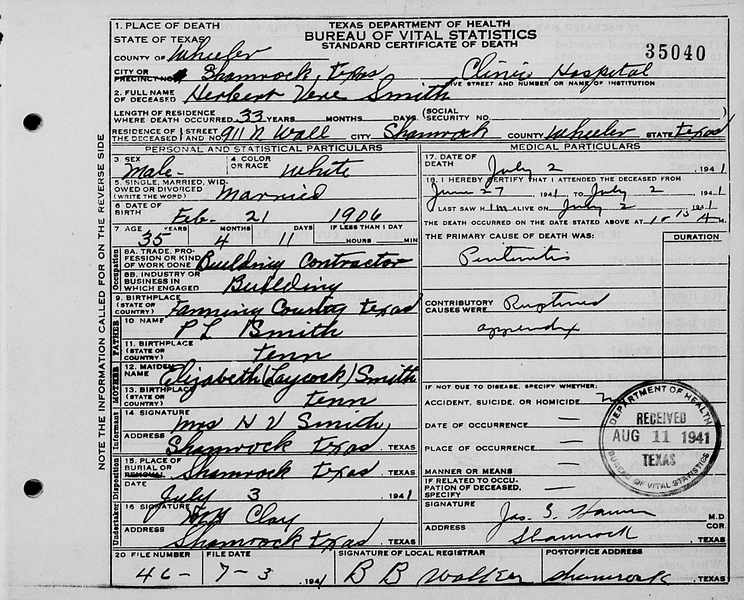 TEXAS DEPARTMENT OF HEALTH
BUREAU OF VITAL STATISTICS
STANDARD CERTIFICATE OF DEATH
35040
1. PLACE OF DEATH
STATE OF TEXAS
COUNTY OF Wheeler
CITY OR PRECINCT NO. Shamrock, Texas Clinic Hospital
GIVE STREET AND NUMBER OR NAME OF INSTITUTION
2. FULL NAME OF DECEASED Herbert Vere Smith
LENGTH OF RESIDENCE WHERE DEATH OCCURRED 33 YEARS MONTHS DAYS (SOCIAL SECURITY NO.
RESIDENCE OF THE DECEASED STREET AND NO. 911 N Wall CITY Shamrock COUNTY Wheeler STATE Texas
PERSONAL AND STATISTICAL PARTICULARS
3 SEX Male 4 COLOR OR RACE White
5 SINGLE, MARRIED, WIDOWED OR DIVORCED (WRITE THE WORD) Married
6 DATE OF BIRTH Feb. 21 1906
7 AGE YEARS MONTHS DAYS IF LESS THAN 1 DAY
35 4 11 HOURS MIN
8A. TRADE, PROFESSION OR KIND OF WORK DONE Building Contractor
8B. INDUSTRY OR BUSINESS IN WHICH ENGAGED Building
Occupation
9. BIRTHPLACE (STATE OR COUNTRY) Fanning County Texas
FATHER
10 NAME P L Smith
11. BIRTHPLACE (STATE OR COUNTRY) Tenn
MOTHER
12. MAIDEN NAME Elizabeth (Laycock) Smith
13. BIRTHPLACE (STATE OR COUNTRY) Tenn
Informant
14. SIGNATURE Mrs H V Smith
ADDRESS Shamrock Texas, TEXAS
Disposition
15. PLACE OF BURIAL OR REMOVAL Shamrock Texas, TEXAS
DATE July 3 1941
Undertaker
16 SIGNATURE Clay
ADDRESS Shamrock Texas, TEXAS
MEDICAL PARTICULARS
17. DATE OF DEATH July 2 1941
18. I HEREBY CERTIFY THAT I ATTENDED THE DECEASED FROM
June 27 1941 TO July 2 1941
I LAST SAW HIM ALIVE ON July 2 1941
THE DEATH OCCURRED ON THE DATE STATED ABOVE AT 10 15 A M.
THE PRIMARY CAUSE OF DEATH WAS: DURATION
Peritonitis
CONTRIBUTORY CAUSES WERE Ruptured
appendix
IF NOT DUE TO DISEASE, SPECIFY WHETHER:
ACCIDENT, SUICIDE, OR HOMICIDE
DATE OF OCCURRENCE —
PLACE OF OCCURRENCE. —
MANNER OR MEANS —
IF RELATED TO OCCUPATION OF DECEASED, SPECIFY —
SIGNATURE Jas. M.D.
ADDRESS Shamrock COR. TEXAS
DEPARTMENT OF HEALTH
RECEIVED
AUG 11 1941
TEXAS
BUREAU OF VITAL STATISTICS
20 FILE NUMBER FILE DATE SIGNATURE OF LOCAL REGISTRAR POSTOFFICE ADDRESS
46- 7-3 1941 B B Walker Shamrock TEXAS
NOTE THE INFORMATION CALLED FOR ON THE REVERSE SIDE